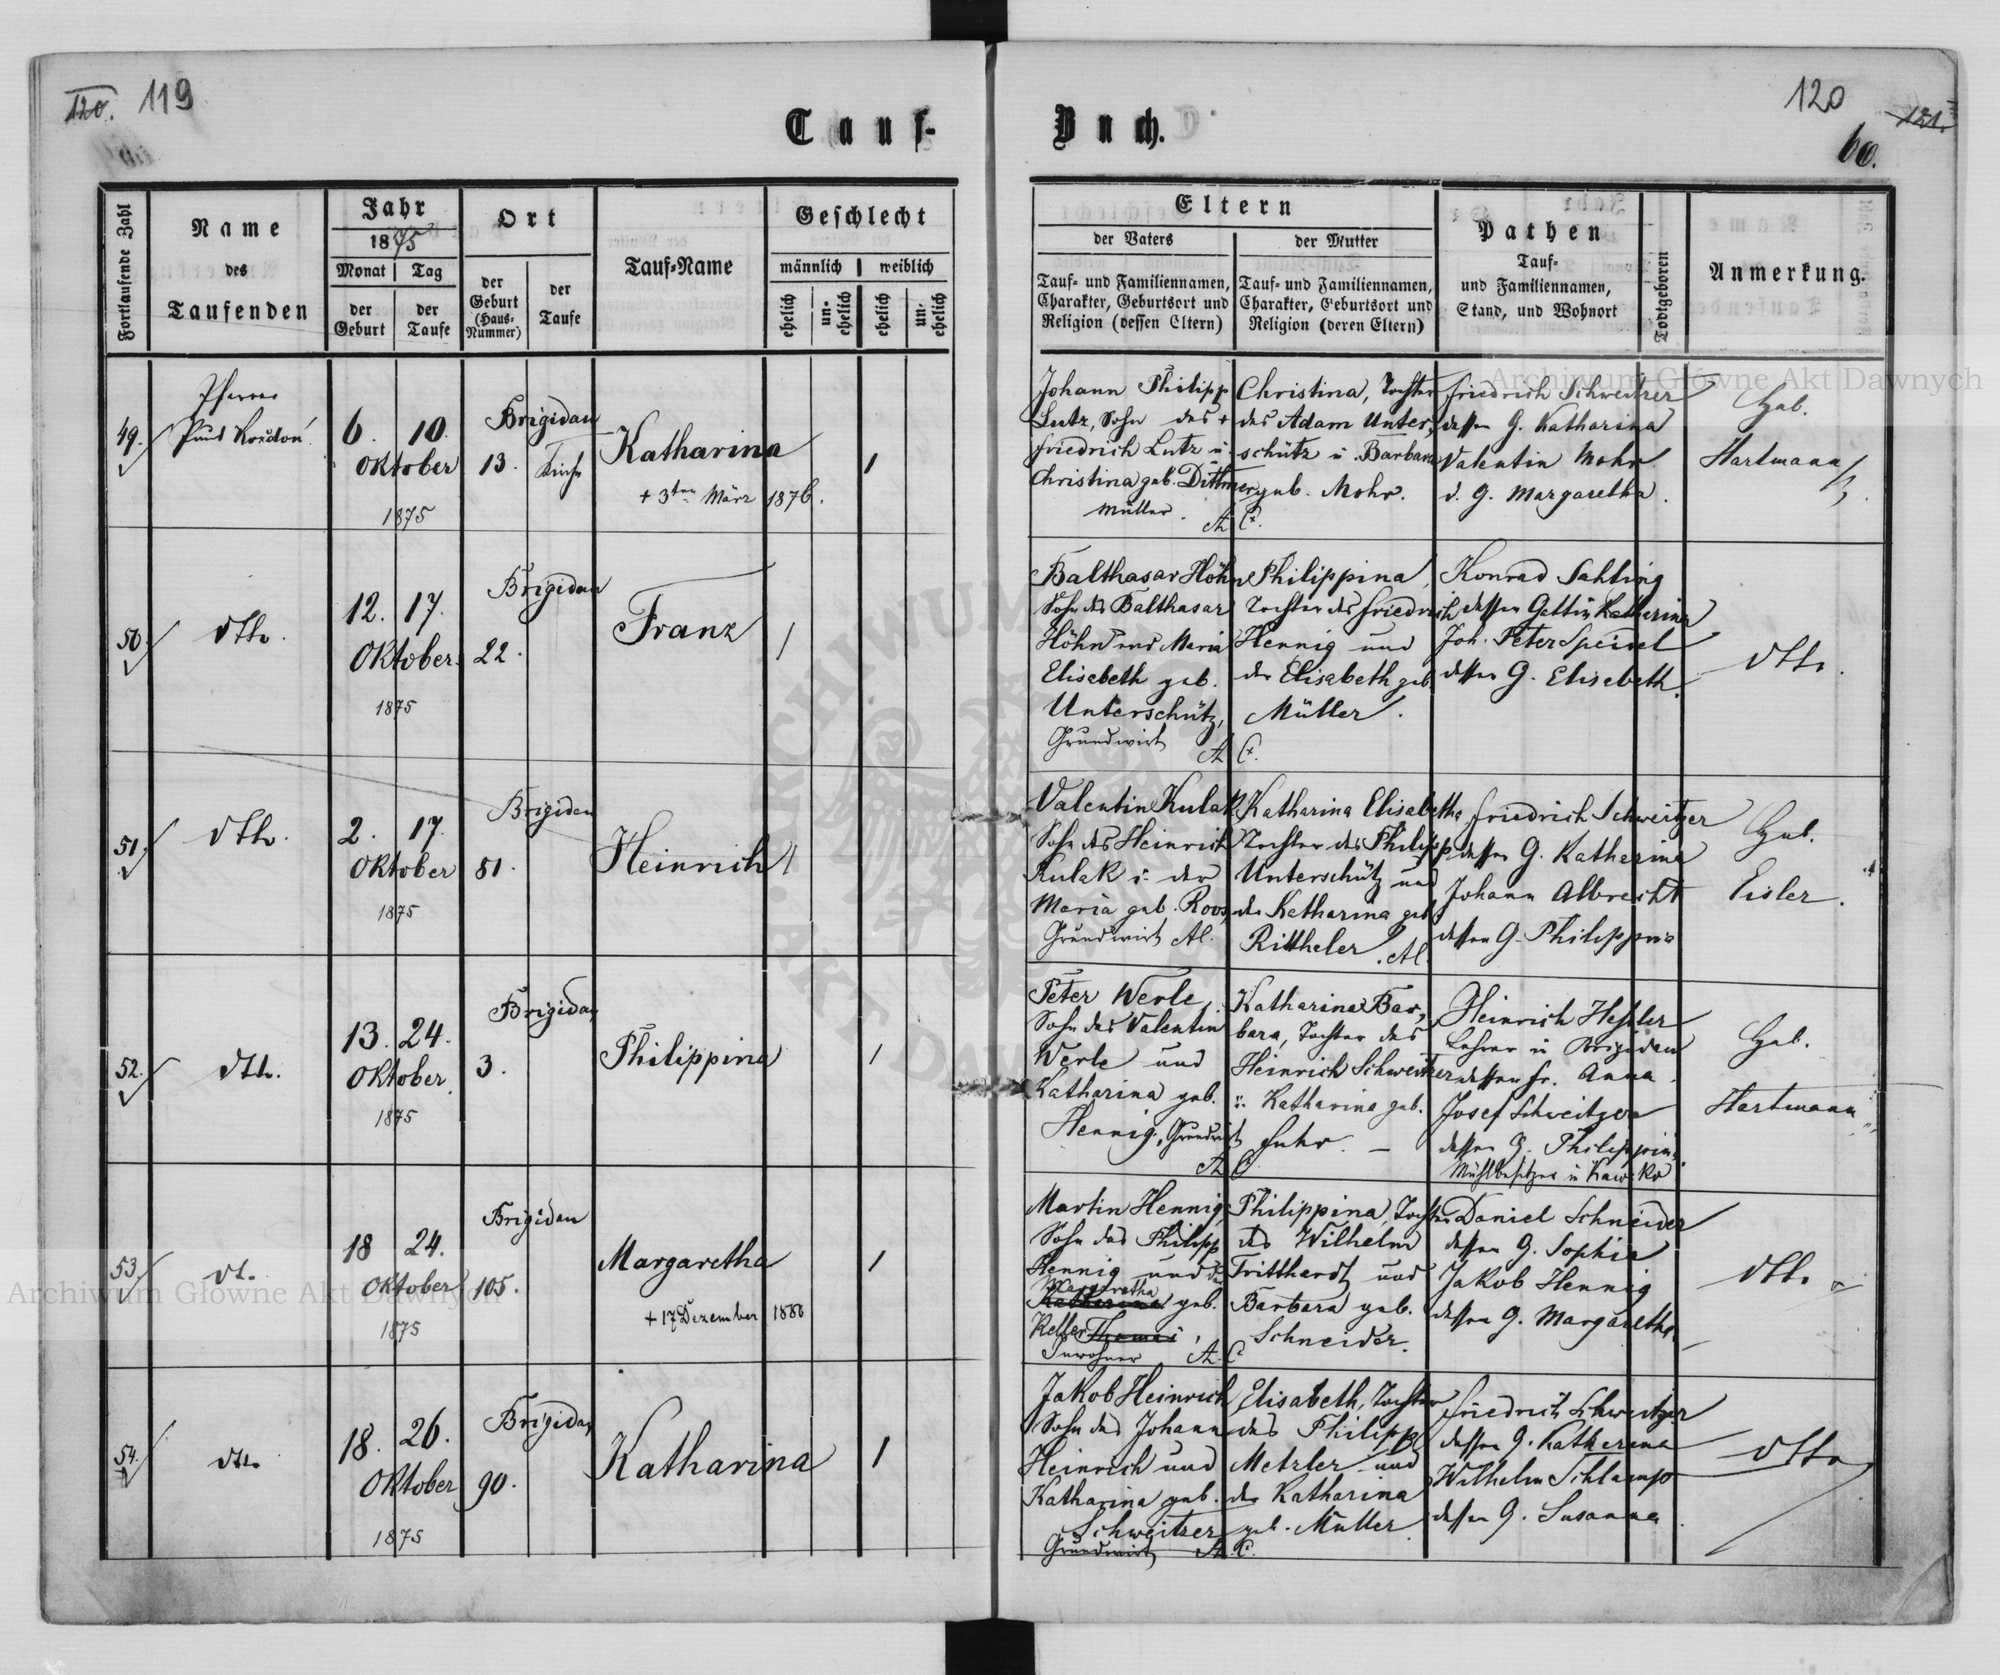 120. 119
Tauf-
Fortlaufende Zahl
Name
des
Taufenden
Jahr
1875
Monat Tag
der Geburt
der Taufe
Ort
der
Geburt
(Haus-
Nummer)
der
Taufe
Tauf-Name
Geschlecht
männlich weiblich
ehelich
un-
ehelich
ehelich
un-
ehelich
49.
Pfarrer
Paul
6. 10.
Oktober
1875
Brigidau
13. Kirche
Katharina
+ 3ten März 1876.
50.
dtto.
12. 17.
Oktober
1875
Brigidau
22.
Franz
51.
dtto.
2. 17.
Oktober
1875
Brigidau
81.
Heinrich
52.
dtto.
13. 24.
Oktober
1875
Brigidau
3.
Philippina
53.
dt.
18 24.
Oktober
1875
Brigidau
105.
Margaretha
+ 17 Dezember 1886
54.
dtto
18. 26.
Oktober
1875
Brigidau
90.
Katharina
120 121.
60.
Buch.
Eltern
der Vaters
der Mutter
Tauf- und Familiennamen,
Charakter, Geburtsort und
Religion (dessen Eltern)
Tauf- und Familiennamen,
Charakter, Geburtsort und
Religion (deren Eltern)
Pathen
Tauf-
und Familiennamen,
Stand, und Wohnort
Todtgeboren
Anmerkung.
Johann Philipp
Lutz, Sohn des +
Friedrich Lutz u
Christina geb. Dittmer
Müller.
A. C.
Christina, Tochter
des Adam Unter-
schütz u. Barbara
geb. Mohr.
Friedrich Schweitzer
dessen G. Katharina
Valentin Mohr
d. G. Margaretha.
Heb.
Hartmann
Balthasar Höhn
Sohn des Balthasar
Höhn und Maria
Elisabeth geb.
Unterschütz,
Grundwirt A. C.
Philippina,
Tochter des Friedrich
Hennig und
der Elisabeth geb.
Müller.
Konrad Sahling
dessen Gattin Katharina
Joh. Peter Speisel
dessen G. Elisabeth.
dtto.
Valentin Kulak
Sohn des Heinrich
Kulak u. der
Maria geb. Roos,
Grundwirt Al.
Katharina Elisabetha
Tochter des Philipp
Unterschütz und
der Katharina geb.
Rittheler. Al.
Friedrich Schweitzer
dessen G. Katharina
Johann Albrecht
dessen G. Philippina
Heb.
Eisler.
Peter Werle,
Sohn des Valentin
Werle und
Katharina geb.
Hennig, Grundwirt
A. C.
Katharina Bar-
bara, Tochter des
Heinrich Schweitzer
u. Katharina geb.
Fuhr. –
Heinrich Heßler
Lehrer in Brigidau
dessen Fr. Anna
Josef Schweitzer
dessen G. Philippina
Mühlbesitzer in
Heb.
Hartmann
Martin Hennig,
Sohn des Philipp
Hennig und der
Margaretha
Katharina geb.
Keller Thomas,
Inwohner A. C.
Philippina, Tochter
des Wilhelm
Tritthardt und
Barbara geb.
Schneider.
Daniel Schneider
dessen G. Sophia
Jakob Hennig
dessen G. Margaretha
dtto.
Jakob Heinrich
Sohn des Johann
Heinrich und
Katharina geb.
Schweitzer
Grundwirt A. C.
Elisabeth, Tochter
des Philipp
Metzler und
der Katharina
geb. Müller
Friedrich Schweitzer
dessen G. Katharina
Wilhelm Schlamp
dessen G. Susanna
dtto
Archiwum Główne Akt Dawnych
Archiwum Główne Akt Dawnych